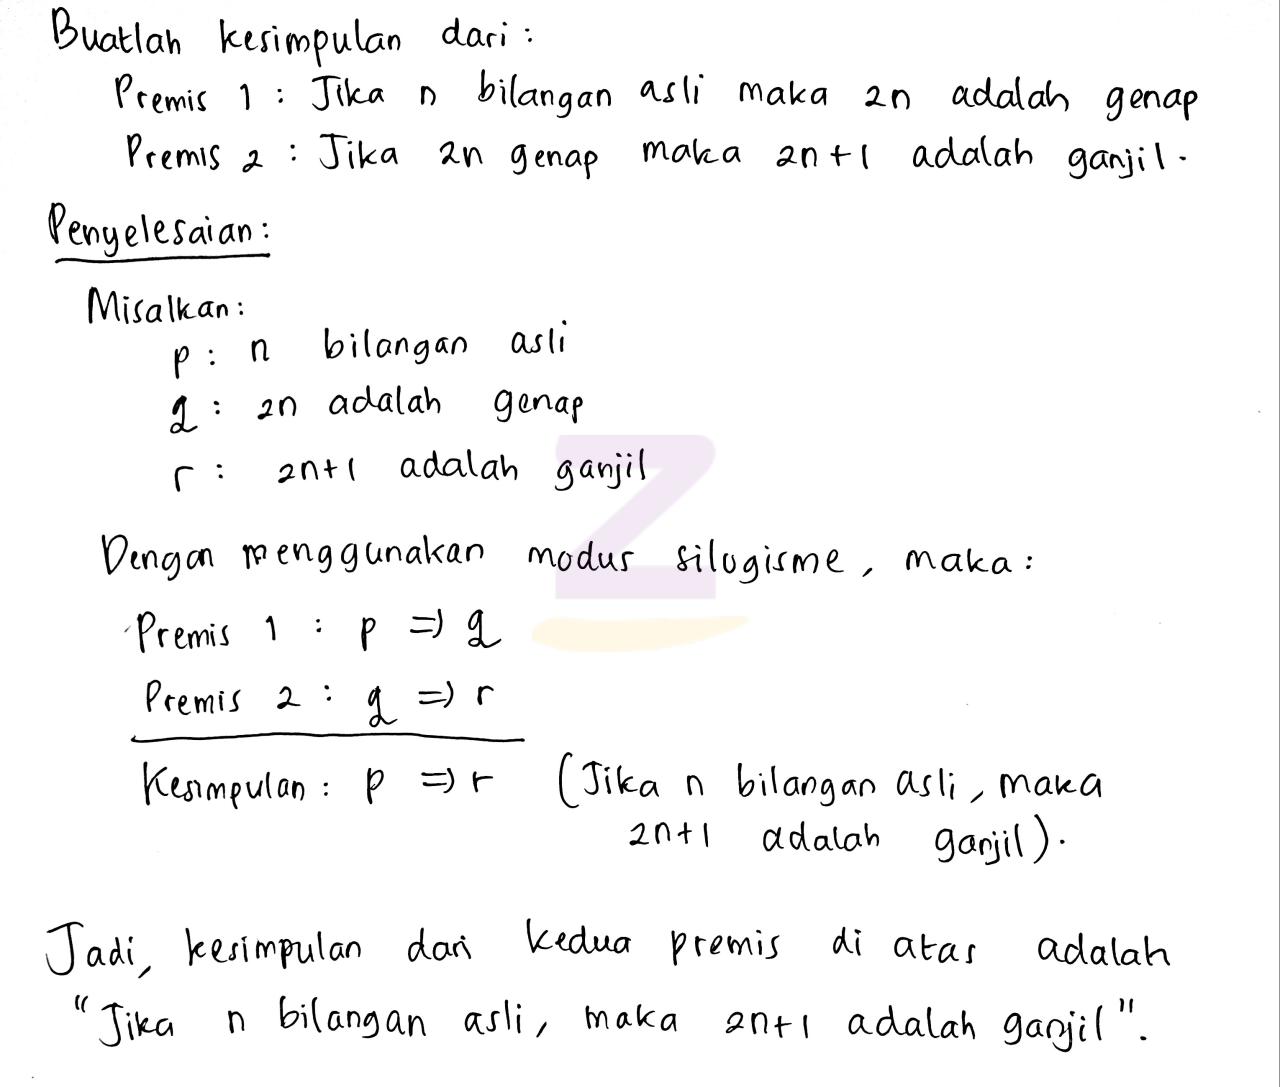 Buatlah kesimpulan dari :
Premis 1 : Jika n bilangan asli maka 2n adalah genap
Premis 2 : Jika 2n genap maka 2n+1 adalah ganjil.
Penyelesaian :
Misalkan :
p : n bilangan asli
q : 2n adalah genap
r : 2n+1 adalah ganjil
Z
Dengan menggunakan modus silogisme, maka :
Premis 1 : p => q
Premis 2 : q => r
Kesimpulan : p => r (Jika n bilangan asli, maka
2n+1 adalah ganjil).
Jadi, kesimpulan dari kedua premis di atas adalah
"Jika n bilangan asli, maka 2n+1 adalah ganjil".